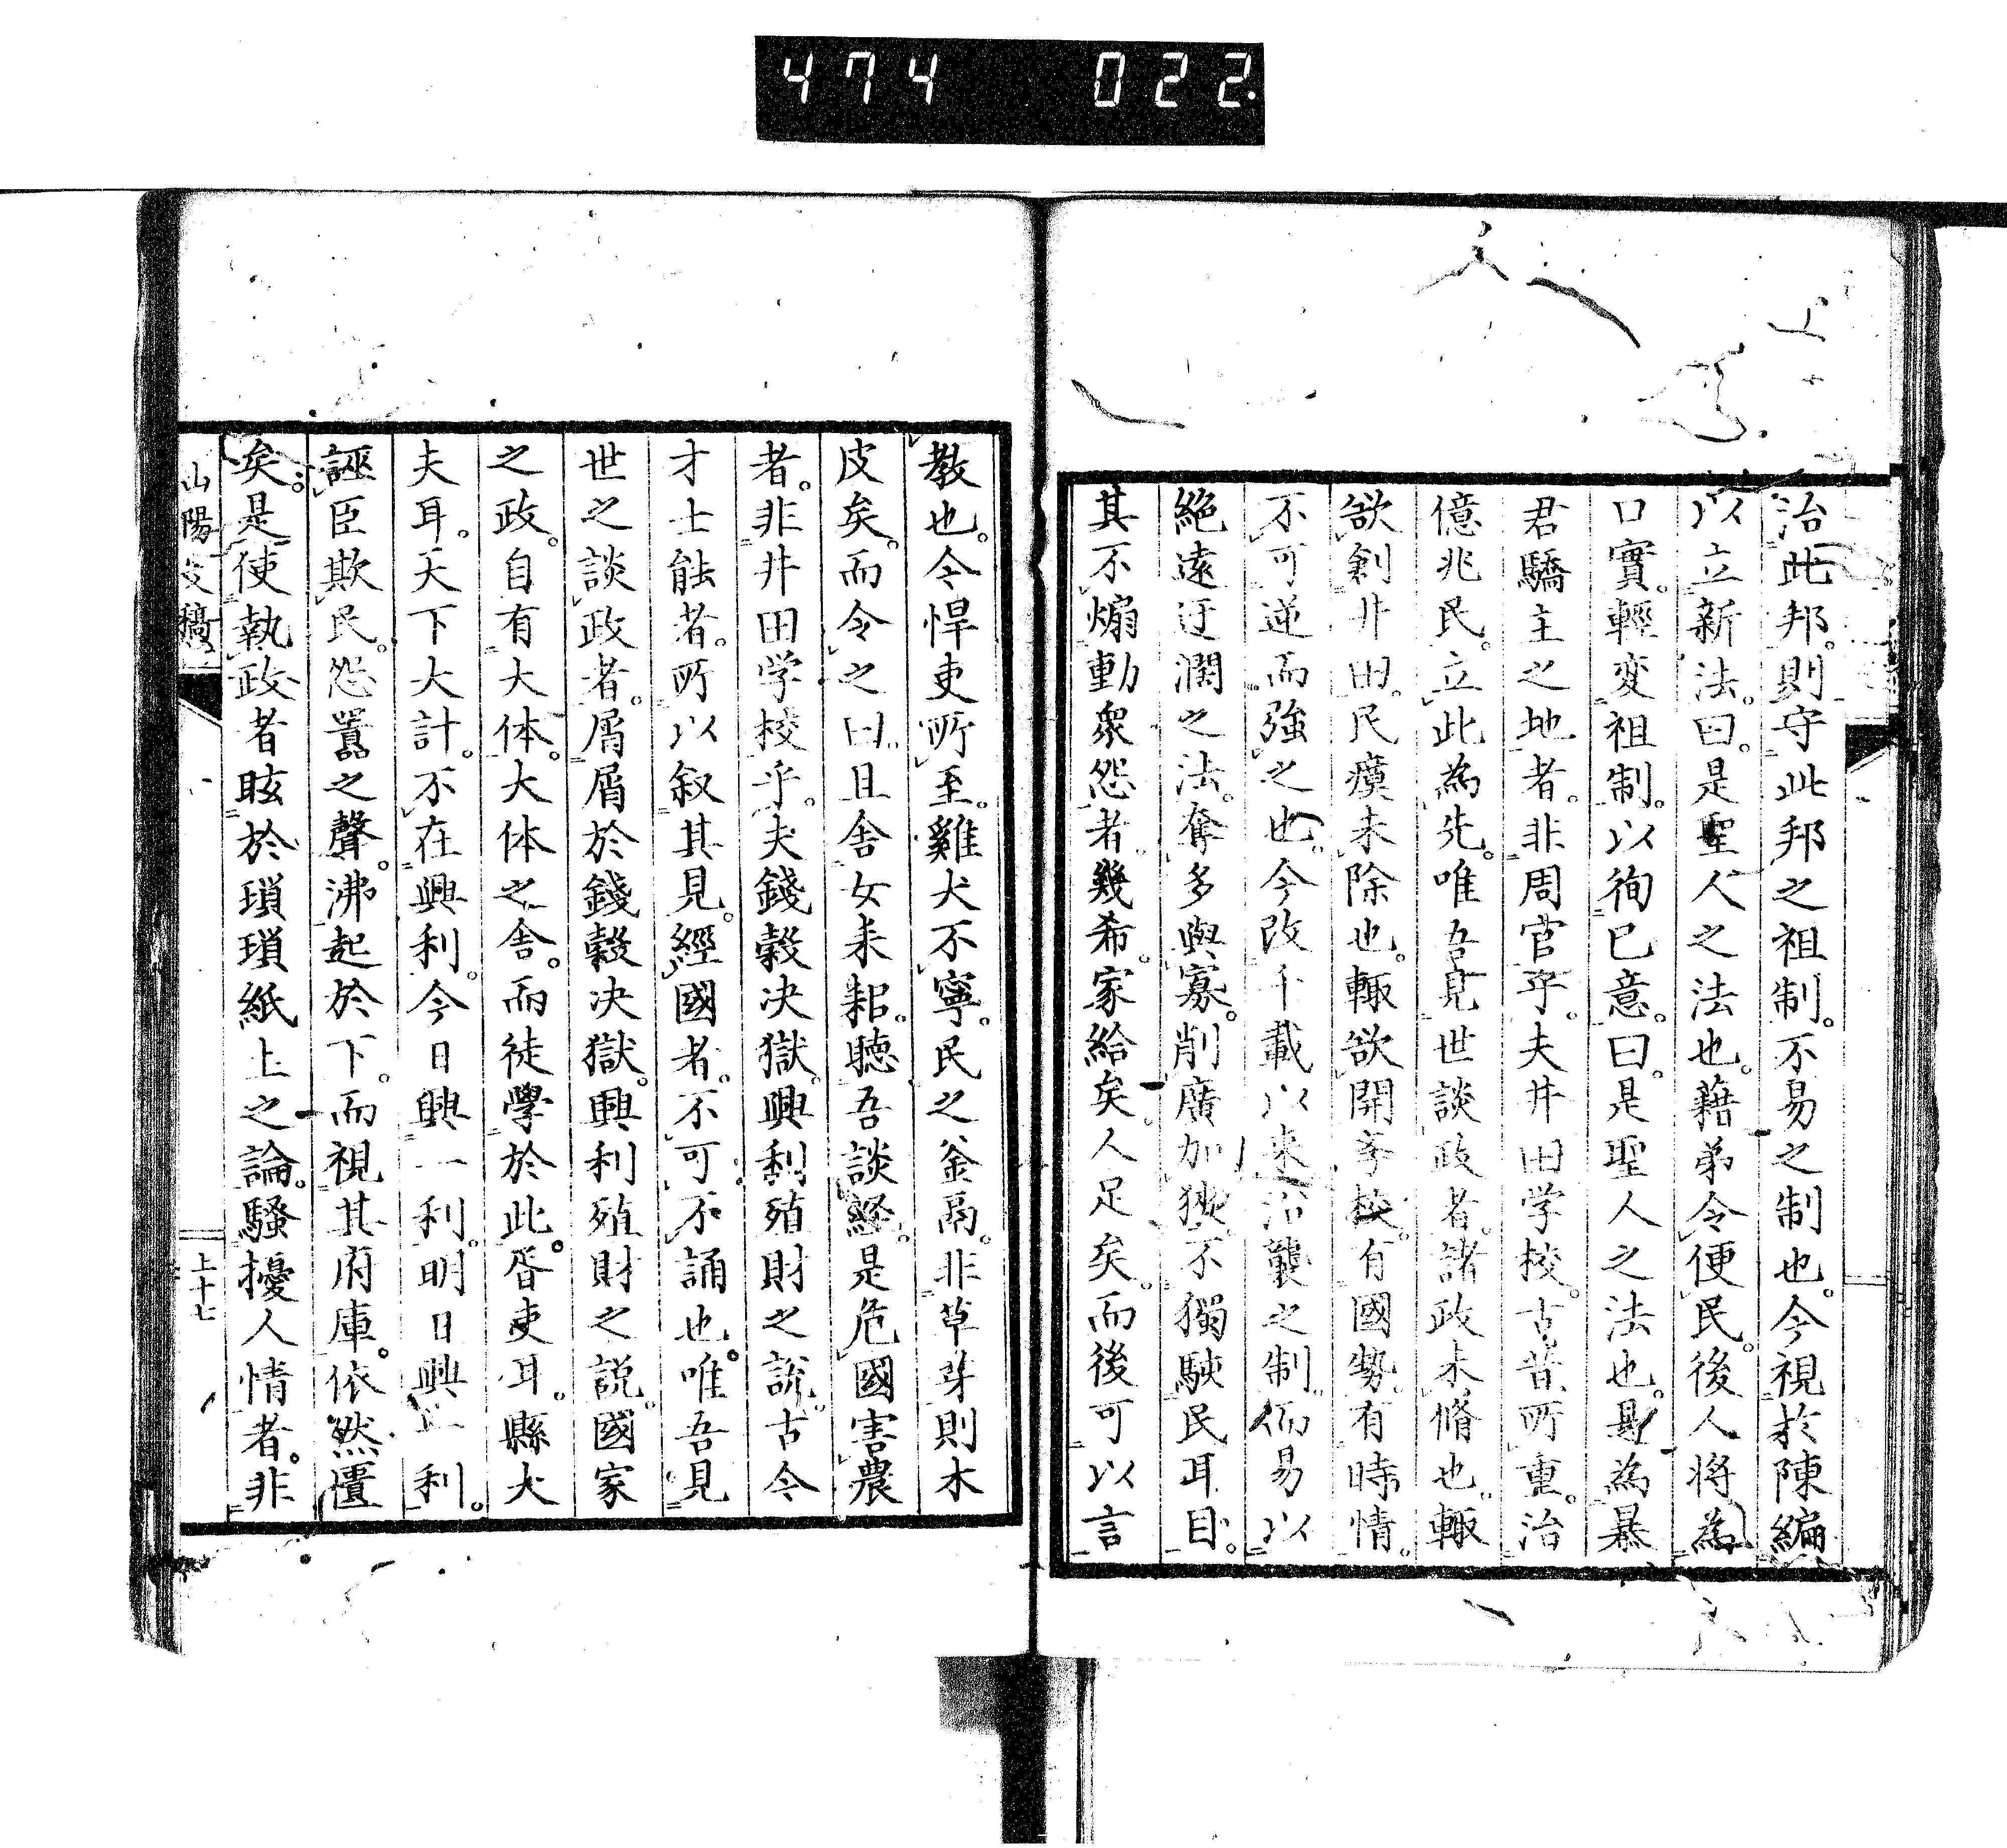 474 022.
治此邦。則守此邦之祖制。不易之制也。今視於陳編
以立新法。曰。是聖人之法也。藉弟令便民。後人將為
口實。輕変祖制。以徇己意。曰。是聖人之法也。是為暴
君驕主之地者。非周官乎。夫井田学校。古昔所重。治
億兆民。立此為先。唯吾見世談政者。諸政未脩也。輙
欲創井田。民瘼未除也。輙欲開学校。有國勢。有時情。
不可逆而強之也。今改千載以来沿襲之制。而易以
絶遠迂濶之法。奪多與寡。削廣加狹。不獨駭民耳目。
其不煽動衆怨者。幾希。家給矣。人足矣。而後可以言
教也。今悍吏所至。雞犬不寧。民之釜鬲。非草芽則木
皮矣。而令之曰。且舎女耒耜。聴吾談經。是危國害農
者。非井田学校乎。夫錢穀决獄。興利殖財之說。古今
才士能者。所以叙其見。經國者。不可不誦也。唯吾見
世之談政者。屑屑於錢穀决獄。興利殖財之説。國家
之政。自有大体。大体之舎。而徒學於此。胥吏耳。縣大
夫耳。天下大計。不在興利。今日興一利。明日興一利。
誣臣欺民。怨嚚之聲。沸起於下。而視其府庫。依然匱
矣。是使執政者眩於瑣瑣紙上之論。騷擾人情者。非
山陽文稿
上十七